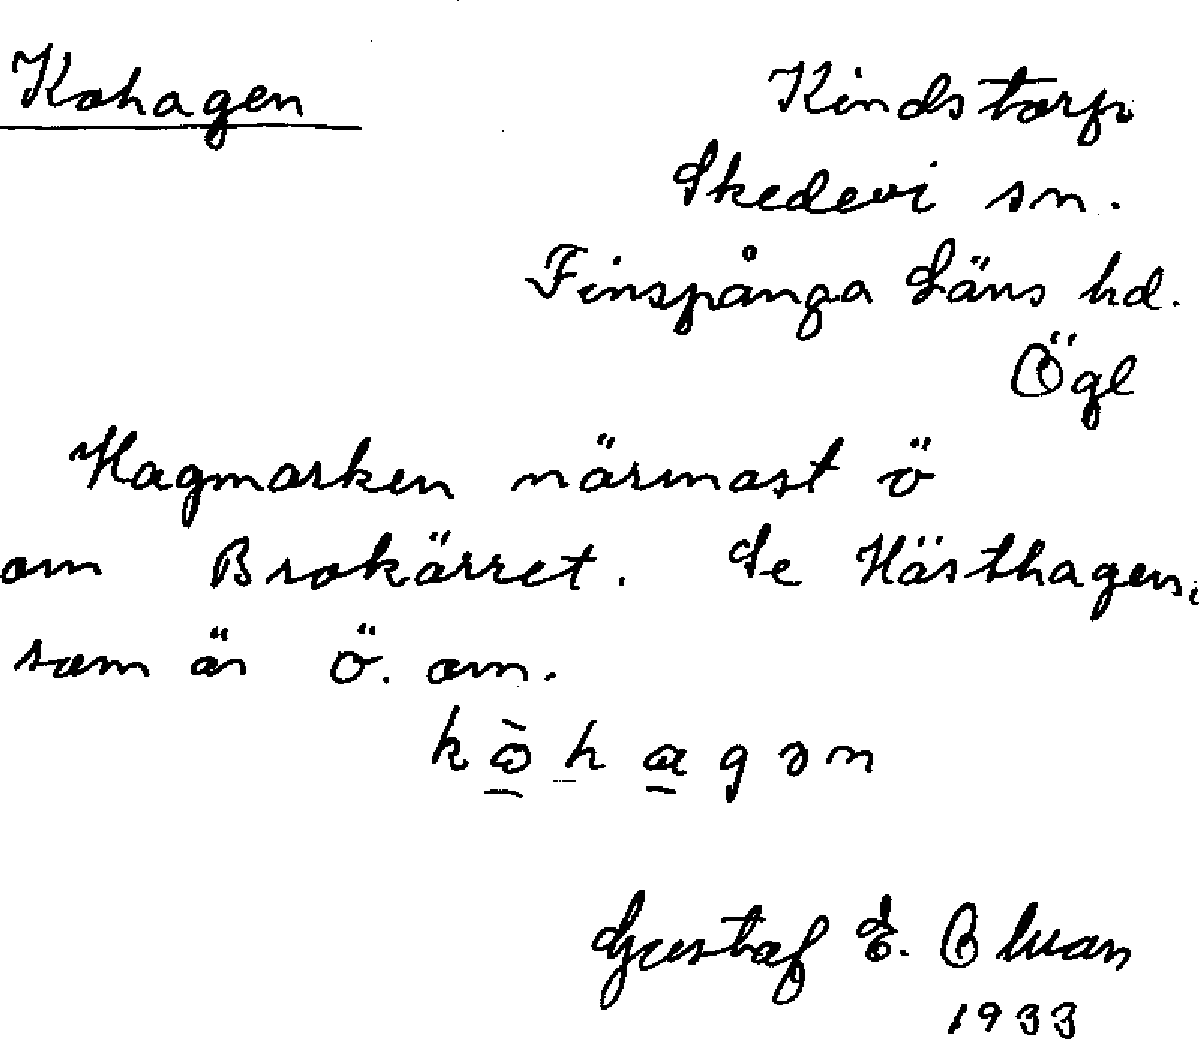 Kohagen
Kindstorp
Skedevi sn.
Finspånga Läns hd.
Ögl
Hagmarken närmast ö
om Brokärret. Se Hästhagen,
som är ö. om.
Gustaf E.
1933